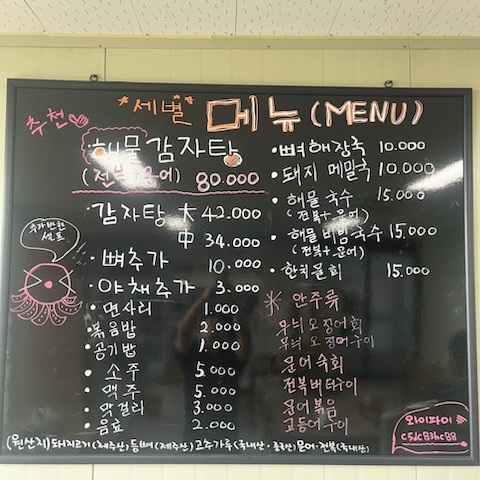 추천
*세별* 메뉴(MENU)
·해물감자탕
(전복+문어) 80.000
·감자탕 大 42.000
中 34.000
·뼈추가 10.000
·야채추가 3.000
·면사리 1.000
·볶음밥 2.000
·공기밥 1.000
·소주 5.000
·맥주 5.000
·막걸리 3.000
·음료 2.000
추가반찬
셀프
·뼈해장국 10.000
·돼지 메밀국 10.000
·해물 국수 15.000
(전복+문어)
·해물비빔국수 15,000
(전복+문어)
·한치물회 15.000
안주류
무늬오징어회
무늬오징어구이
문어숙회
전복버터구이
문어볶음
고등어구이
와이파이
c5dc83hc88
(원산지)돼지고기(제주산)등뼈(제주산)고추가루(국내산·중국산)문어·전복(국내산)